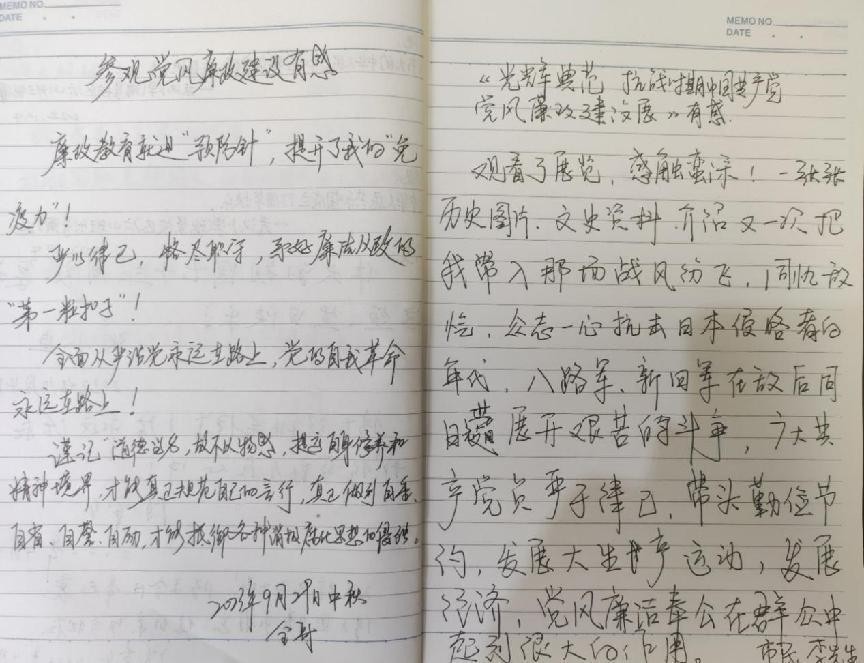 MEMO NO.
DATE
参观党风廉政建设有感
廉政教育就是"预防针",提升了我的"免
疫力"!
严以律己,恪尽职守,系好廉洁从政的
"第一粒扣子"!
全面从严治党永远在路上,党的自我革命
永远在路上!
谨记"道德 ,故不以物惑,提高自身修养和
精神境界,才能真正规范自己的言行,真正做到自重、
自省、自警、自励,才能抵御各种消极腐化思想的侵蚀。
2023年9月29日中秋
MEMO NO.
DATE
《光辉典范 抗战时期中国共产党
党风廉政建设展》有感
观看了展览,感触蛮深!一张张
历史图片、文史资料、介绍又一次把
我带入那场战风纷飞,同仇敌
忾,众志一心抗击日本侵略者的
年代,八路军、新四军在敌后同
日 展开艰苦的斗争,广大共
产党员严于律己,带头勤俭节
约,发展大生产运动,发展
经济,党风廉洁奉公在群众中
起到很大的作用。 市民 李先生